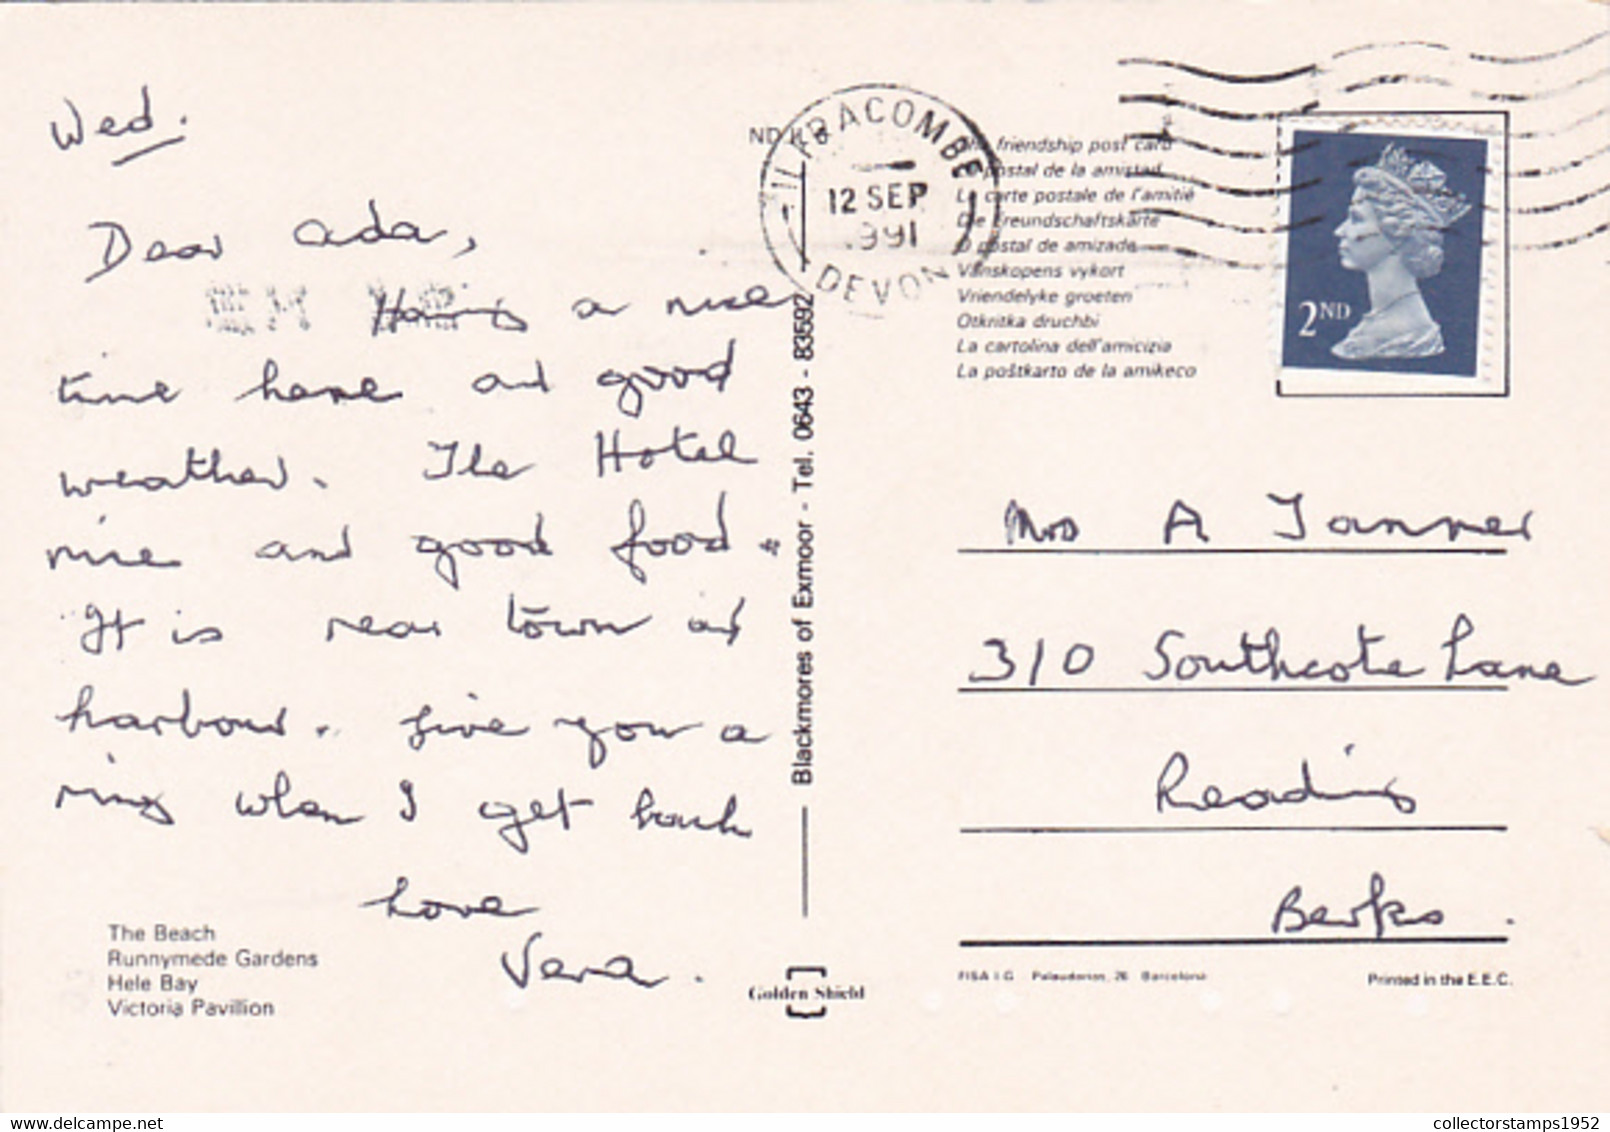 Wed.
Dear Ada,
Having a nice
time here and good
weather. The Hotel
nice and good food.
It is near town and
harbour. Give you a
ring when I get back
Love
Vera.
The Beach
Runnymede Gardens
Hele Bay
Victoria Pavillion
Blackmores of Exmoor - Tel. 0643 - 83592
Golden Shield
ILFRACOMBE
12 SEP
1991
DEVON
friendship post card
postal de la amistad
La carte postale de l'amitié
Die Freundschaftskarte
O postal de amizade
Vänskopens vykort
Vriendelyke groeten
Otkritka druchbi
La cartolina dell'amicizia
La poŝtkarto de la amikeco
2ND
Mrs A Tanner
310 Southcote Lane
Reading
Berks.
FISA I.G. Palaudarias, 26 Barcelona
Printed in the E.E.C.
collectorstamps1952